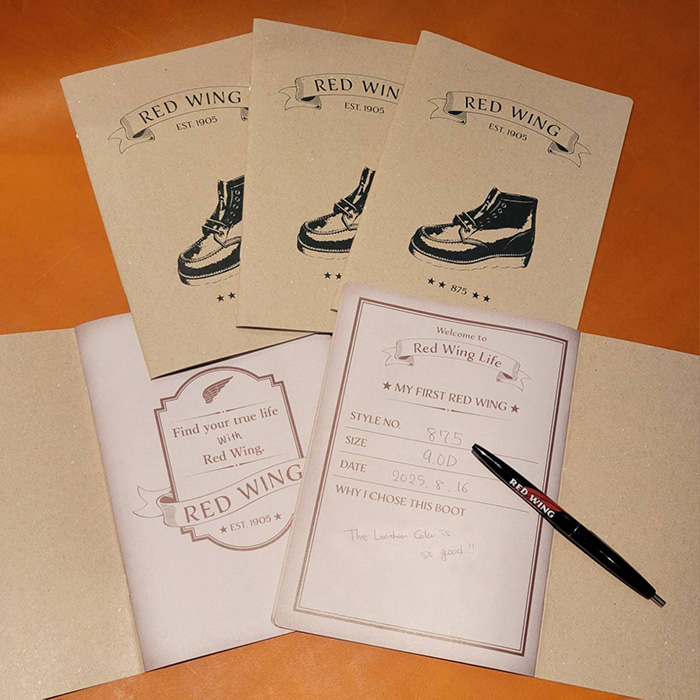 RED WING
EST. 1905
★★
RED WING
EST. 1905
★★
RED WING
EST. 1905
★★ 875 ★★
Find your true life
With
Red Wing.
RED WING
★ EST. 1905 ★
Welcome to
Red Wing Life
★ MY FIRST RED WING ★
STYLE NO. 875
SIZE 9.0D
DATE 2025.8.16
WHY I CHOSE THIS BOOT
The Leather Color is
so good!!
RED WING